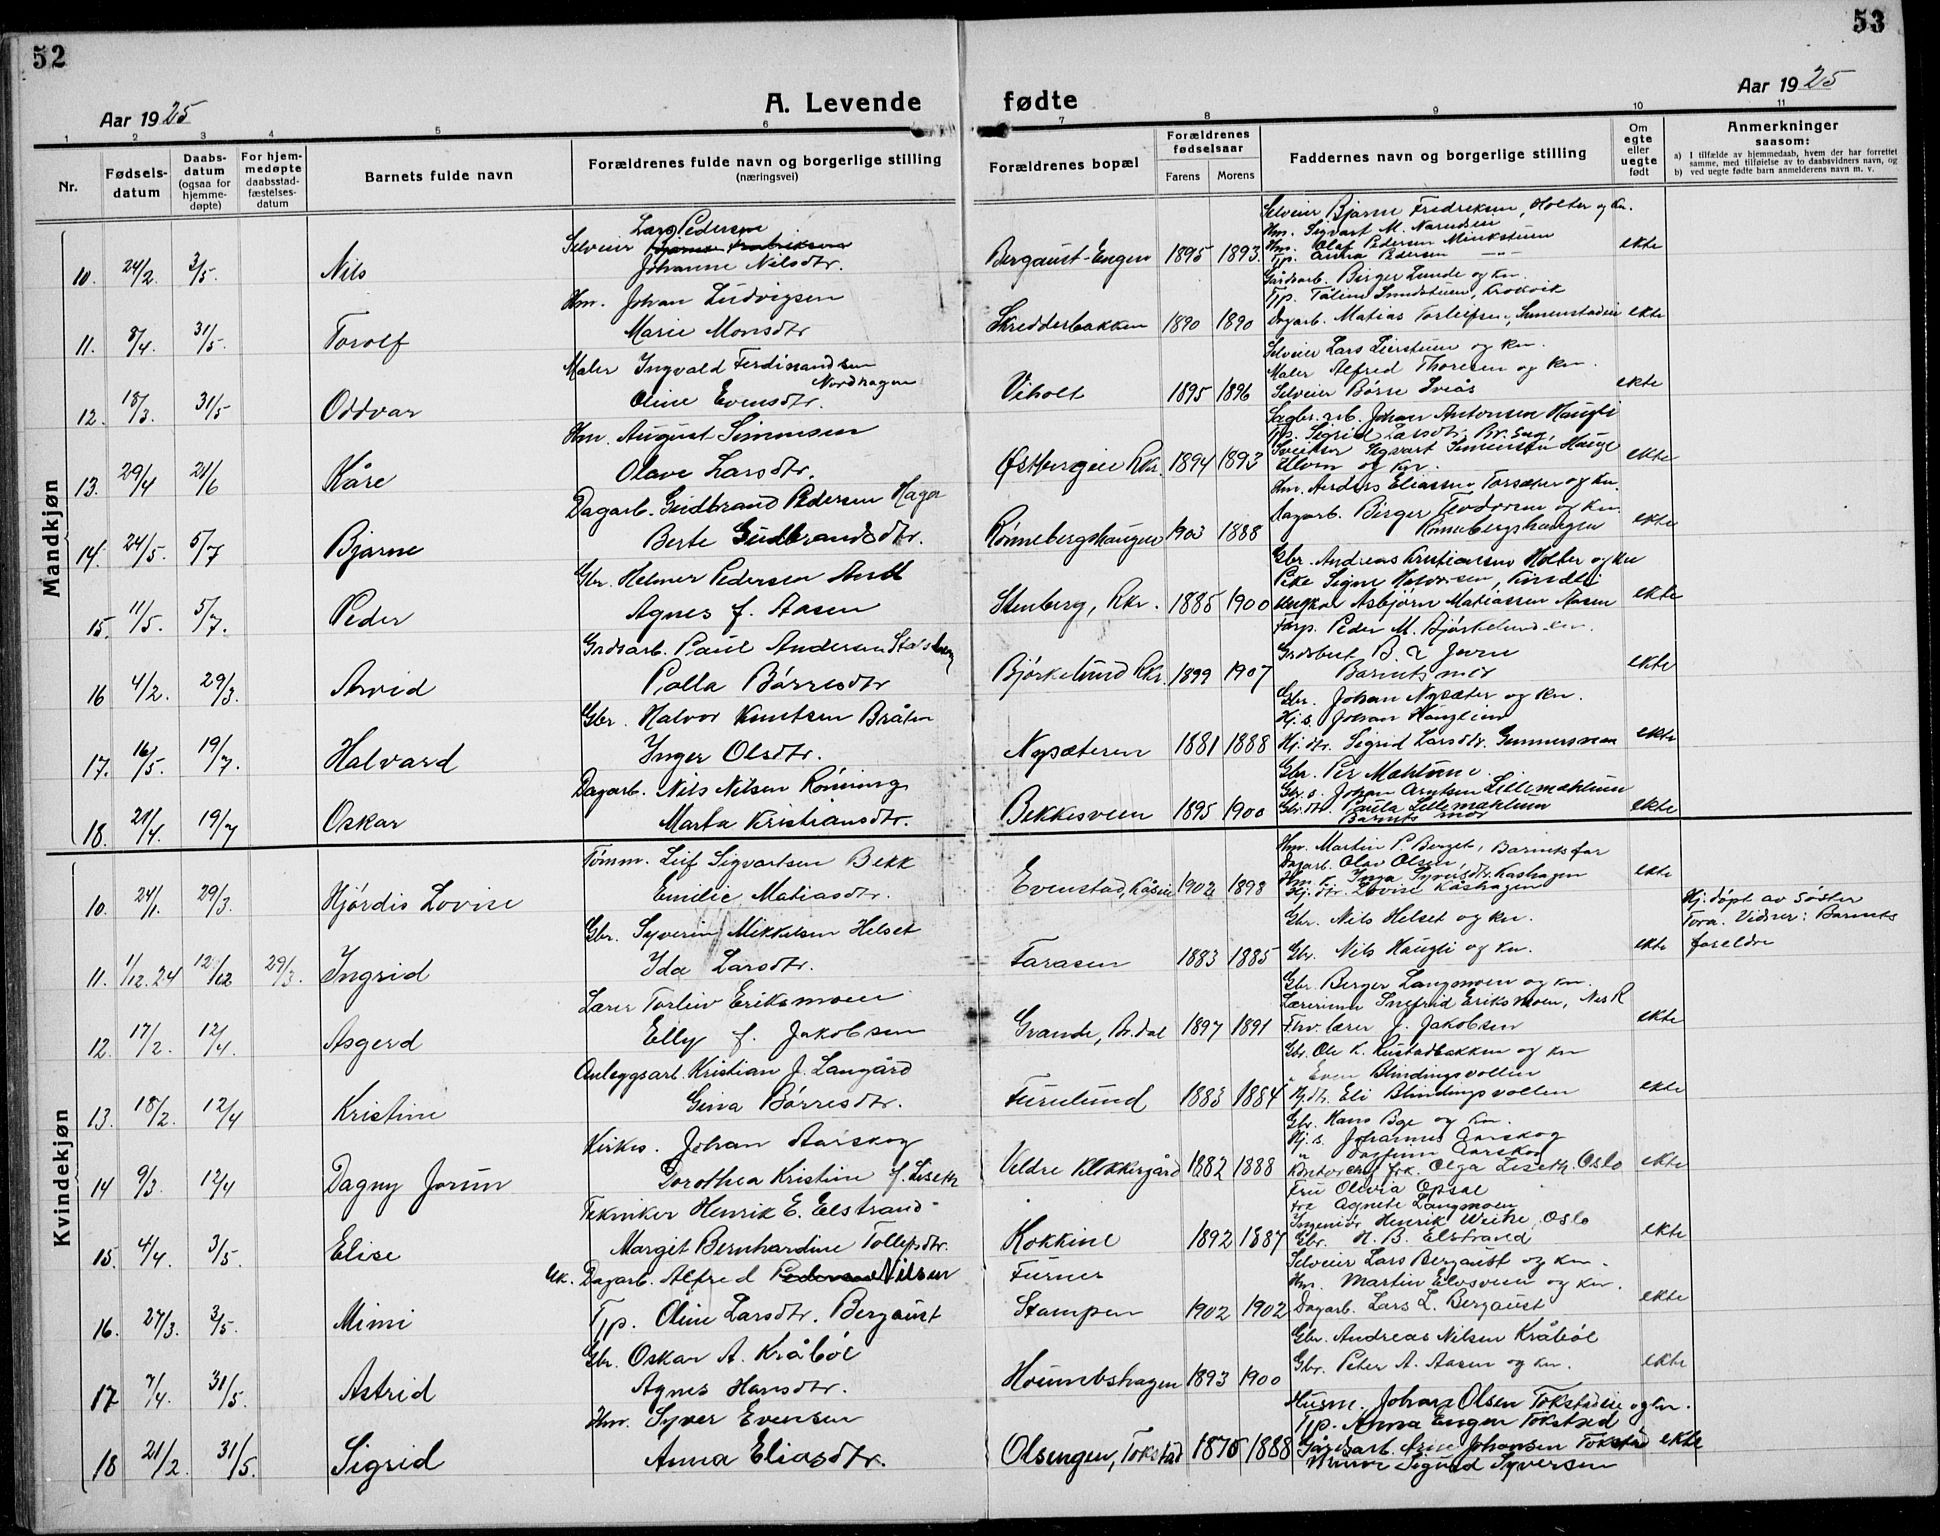 52
53
Aar 1925
A. Levende fødte
Aar 1925
1 2 3 4 5 6 7 8 9 10 11
Nr.
Fødsels-datum
Daabs-datum (ogsaa for hjemme-døpte)
For hjem-medøpte daabsstad-fæstelses-datum
Barnets fulde navn
Forældrenes fulde navn og borgerlige stilling (næringsvei)
Forældrenes bopæl
Forældrenes fødselsaar
Farens
Morens
Faddernes navn og borgerlige stilling
Om egte eller uegte født
Anmerkninger saasom:
a) I tilfælde av hjemmedaab, hvem der har forrettet samme, med tilføielse av to daabsvidners navn, og
b) ved uegte fødte barn anmelderens navn m. v.
Mandkjøn
Lars Pedersen
Selveier Bjarne Fredriksen
10. 24/2. 3/5. Nils Johanne Nilsdtr. Bergaust-Engen 1895 1893. ekte
Selveier Bjarne Fredriksen, Holter og kn.
Hm. Sigvart M.
Hm. Olaf Pedersen
Tjp. Anna Pedersen —"—
Hm. Johan Ludvigsen
11. 8/4. 31/5. Torolf Marie Monsdtr Skredderbakken 1890 1890 ekte
Gårdsarb. Birger Lunde og kn.
Dagarb. Matias Torleifsen,
Maler Ingvald Ferdinandsen Nordhagen
12. 18/3. 31/5 Oddvar Oline Evensdtr. Viholt 1895 1896 ekte
Selveier Lars og kn.
Maler Alfred Thoresen og kn.
Selveier Børre
Hm. August Simensen
13. 29/4 21/6 Kåre Olave Larsdtr. Østbergeie Rkr. 1894 1893 ekte
Johan Antonsen Haugli
Tjp. Sigrid Larsdtr.
og kn.
Hm. Anders Eliassen og kn.
Dagarb. Gudbrand Pedersen Hagen
14. 24/5. 5/7 Bjarne Berte Gudbrandsdtr. Rønnebergshaugen 1903 1888 ekte
Dagarb. Birger Teodorsen og kn
Rønnebergshaugen
Gbr. Helmer Pedersen
15. 11/5. 5/7. Peder Agnes f. Aasen Stenberg, Rkr. 1885 1900 ekte
Gbr. Andreas Kristiansen Holter og kn
Pike Signe Halvorsen,
Ungkar Asbjørn Matiassen Aasen
Forp. Peder M. Bjørkelund
Grdsarb. Paul Andersen Stavsberg
16 4/2. 29/3. Arvid Palla Børresdtr Bjørkelund Rkr. 1899 1907 ekte
Barnets mor
Gbr. Halvor Knutsen Bråten
17. 16/5. 19/7. Halvard Inger Olsdtr. Nysæteren 1881 1888 ekte
Gbr. Johan Nysæter og kn.
Hj. s. Johan Hauglien
Hj. dtr. Sigrid Larsdtr. Gunnersveen
Dagarb. Nils Nilsen Rönning
18. 21/4. 19/7 Oskar Marta Kristiansdtr. Bekkesveen 1895 1900 ekte
Gbr. Per Mæhlum
Gbr. s. Johan Arntsen Lillemæhlum
Gbr. dtr. Paula Lillemæhlum
Barnets mor
Kvindekjøn
Tømm. Leif Sigvartsen Bekk
10. 24/1. 29/3. Hjördis Lovise Emilie Matiasdtr. Evenstad, 1902 1898 ekte
Hm. Martin P. Berget, Barnets far
Dagarb. Olav Olsen,
Hm. k. Inga Syversdtr. Kåshagen
Hj. dtr. Lovise Kåshagen
Gbr. Syverin Mikkelsen Helset
11. 1/12.24 12/12 29/3. Ingrid Ida Larsdtr. Faråsen 1883 1885 ekte
Gbr. Nils Helset og kn.
Gbr. Nils Haugli og kn.
Hj. døpt av søster
Tora. Vidner: Barnets
foreldre
Lærer Torleiv Eriksmoen
12. 17/2. 12/4. Asgerd Elly f. Jakobsen Grande, 1897 1891 ekte
Gbr. Berger Langmoen og kn.
Lærerinne Snefrid Eriksmoen, Nes R
Fhv. lærer J. Jakobsen
Anleggsarb. Kristian J. Langård
13. 18/2. 12/4 Kristine Gina Börresdtr. Furulund 1883 1884 ekte
Gbr. Ole K. Rustadbakken og kn
" Even Blindingsvollen
Hj.dtr. Eli Blindingsvollen
Kirkes. Johan Aarskog
14 9/3. 12/4 Dagny Jorun Dorothea Kristine f. Liseth Veldre Klokkergård 1882 1888 ekte
Gbr. Hans Bye og kn.
Hj. s. Johannes Aarskog
" Dagfinn Aarskog
frk. Olga Liseth. Oslo
Tekniker Henrik E. Elstrand
15. 4/4. 3/5. Elise Margit Bernhardine Tollefsdtr. Kokkine 1892 1887 ekte
Fru Olivia Opsal
Fru Agnete Langmoen
Ingeniör Henrik Weihe, Oslo
Gbr. H. B. Elstrand
Uk. Dagarb. Alfred Pedersen Nilsen Furnes
16. 27/3. 3/5. Mimi Tjp. Oline Larsdtr. Bergaust Stampen 1902 1902 ekte
Selveier Lars Bergaust og kn.
Hm. Martin Elvsveen og kn.
Dagarb. Lars L. Bergaust
Gbr. Oskar A. Kråböl
17 7/4. 31/5. Astrid Agnes Hansdtr. 1893 1900 ekte
Gbr. Andreas Nilsen Kråböl
Gbr. Peter A. Aasen og kn.
Hm. Syver Evensen
18 21/2. 31/5. Sigrid Anna Eliasdtr. Olsengen, Tokstad 1875 1888 ekte
Husm. Johan Olsen Tokstadeie og kn.
Tjp. Anna Engen Tokstad
Gårdsarb. Arne Johansen Tokstad
Sigurd Syversen